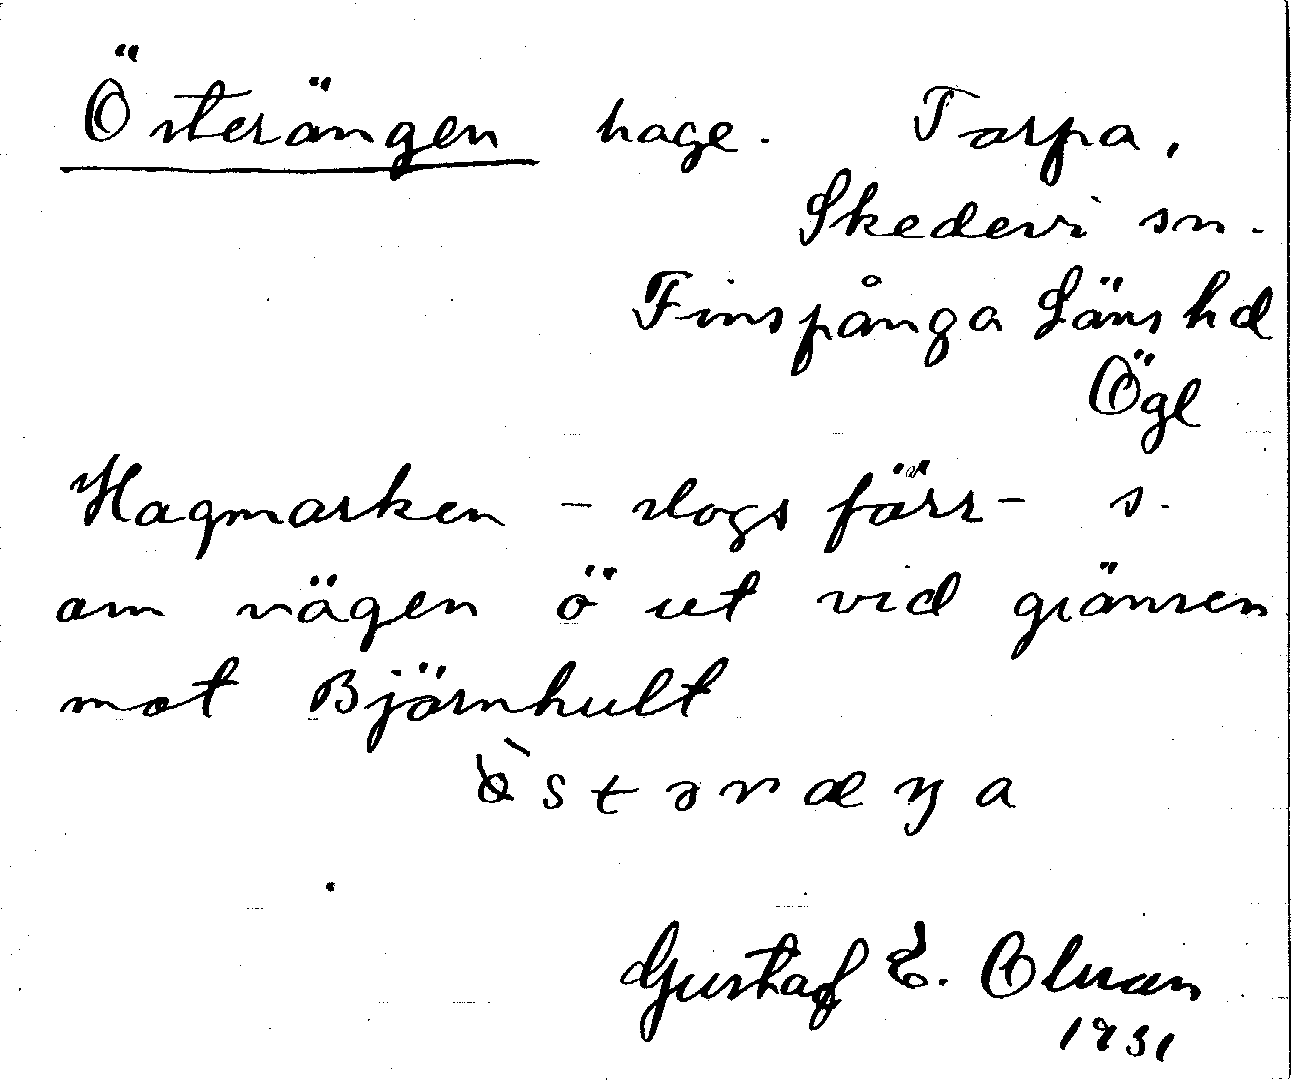 Österängen hage. Torpa,
Skedevi sn.
Finspånga Läns hd
Ögl
Hagmarken - slogs förr - s.
om vägen ö ut vid gränsen
mot Björnhult
östəræŋa
Gustaf E. Olsson
1931